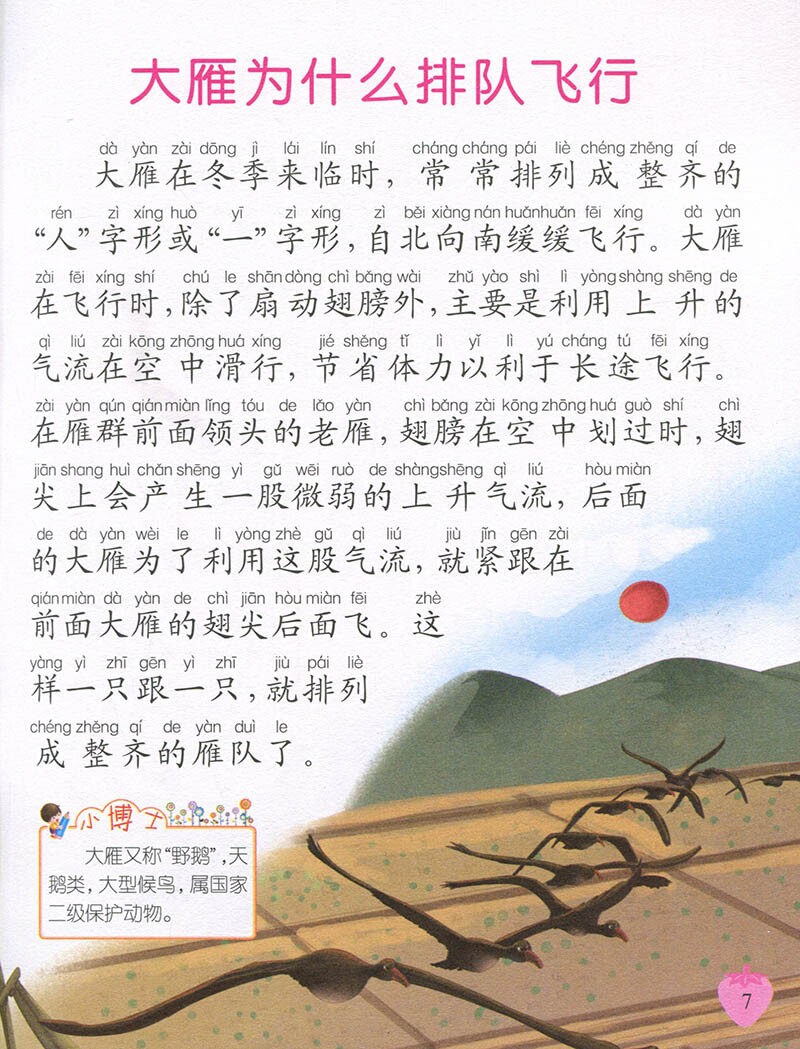 大雁为什么排队飞行
dà yàn zài dōng jì lái lín shí cháng cháng pái liè chéng zhěng qí de
大雁在冬季来临时，常常排列成整齐的
rén zì xíng huò yī zì xíng zì běi xiàng nán huǎn huǎn fēi xíng dà yàn
“人”字形或“一”字形，自北向南缓缓飞行。大雁
zài fēi xíng shí chú le shān dòng chì bǎng wài zhǔ yào shì lì yòng shàng shēng de
在飞行时，除了扇动翅膀外，主要是利用上升的
qì liú zài kōng zhōng huá xíng jié shěng tǐ lì yǐ lì yú cháng tú fēi xíng
气流在空中滑行，节省体力以利于长途飞行。
zài yàn qún qián miàn lǐng tóu de lǎo yàn chì bǎng zài kōng zhōng huá guò shí chì
在雁群前面领头的老雁，翅膀在空中划过时，翅
jiān shang huì chǎn shēng yì gǔ wēi ruò de shàng shēng qì liú hòu miàn
尖上会产生一股微弱的上升气流，后面
de dà yàn wèi le lì yòng zhè gǔ qì liú jiù jǐn gēn zài
的大雁为了利用这股气流，就紧跟在
qián miàn dà yàn de chì jiān hòu miàn fēi zhè
前面大雁的翅尖后面飞。这
yàng yì zhī gēn yì zhī jiù pái liè
样一只跟一只，就排列
chéng zhěng qí de yàn duì le
成整齐的雁队了。
小博士
大雁又称“野鹅”，天
鹅类，大型候鸟，属国家
二级保护动物。
7